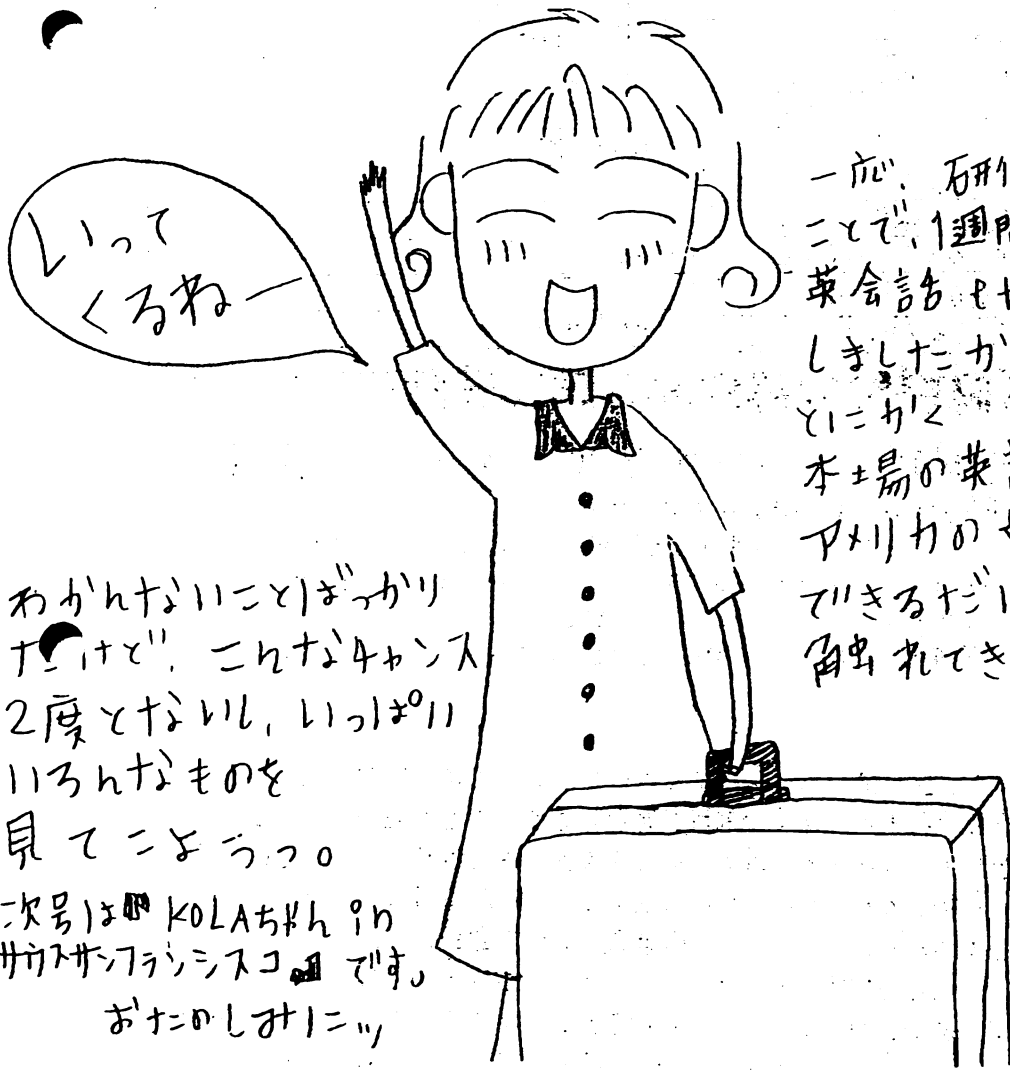 いって
くるねー
一応、研修
ことで、1週間
英会話
しましたが
とにかく
本場の英
アメリカの
できるだけ
触れてき
わかんないことばっかり
だけど、こんなチャンス
2度とないし、いっぱい
いろんなものを
見てこようっ。
次号は『KOLAちゃん in
サウスサンフランシスコ』です。
おたのしみにッ